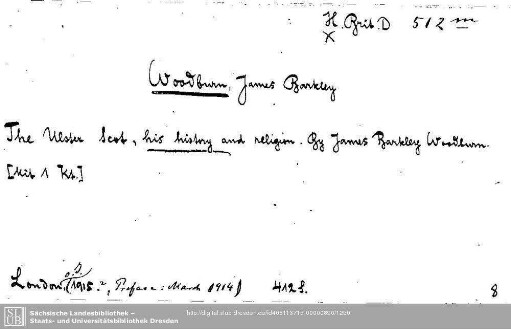 H. Brit. D 512 m
X
Woodburn, James Barkley
The Ulster Scot, his history and religion. By James Barkley Woodburn.
[Mit 1 Kt.]
o. J.
London, (1915?, Preface: March 1914) 412 S.
8
SLUB
Sächsische Landesbibliothek –
Staats- und Universitätsbibliothek Dresden